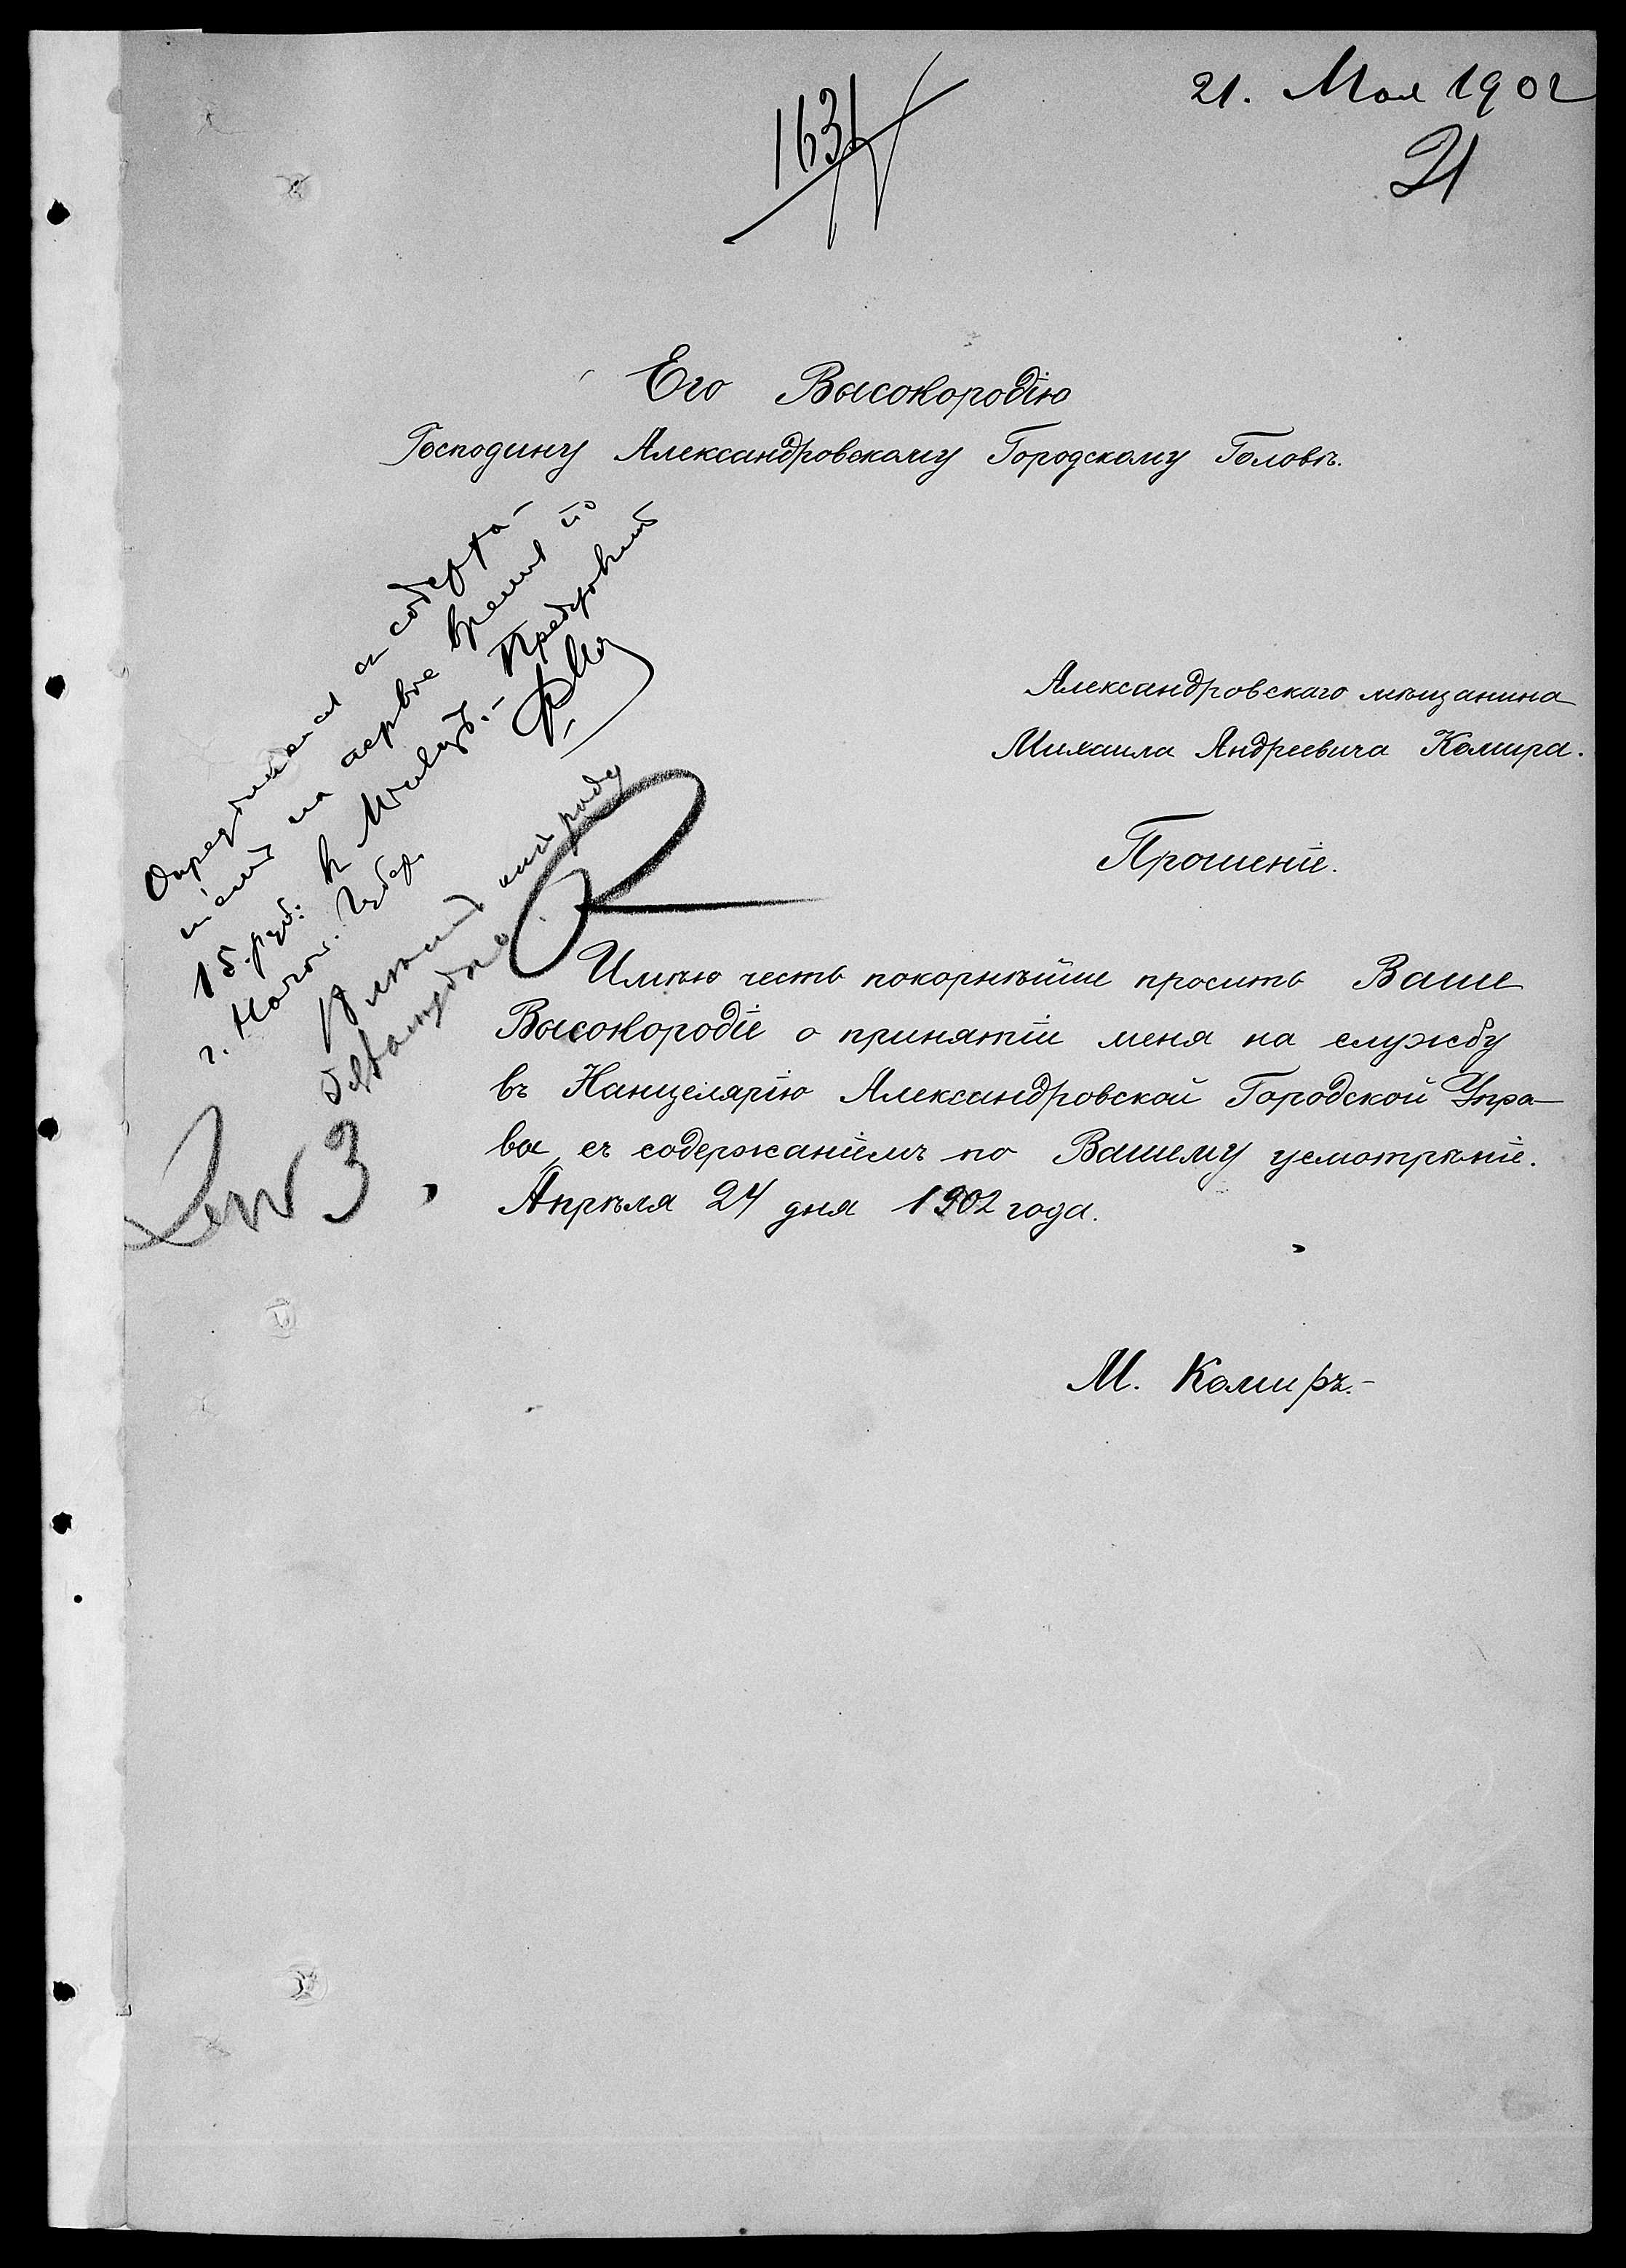 21. Мая 1902
1631
21
Его Высокородію
Господину Александровскому Городскому Головѣ.
Александровскаго мѣщанина
Михаила Андреевича Комира.
Прошеніе.
Имѣю честь покорнѣйше просить Ваше
Высокородіе о принятіи меня на службу
въ Канцелярію Александровской Городской Упра-
вы, съ содержаніемъ по Вашему усмотрѣніе.
Апрѣля 24 дня 1902 года.
М. Комиръ.-
Опредѣляется съ содержа-
ніемъ на первое время по
15 руб. въ